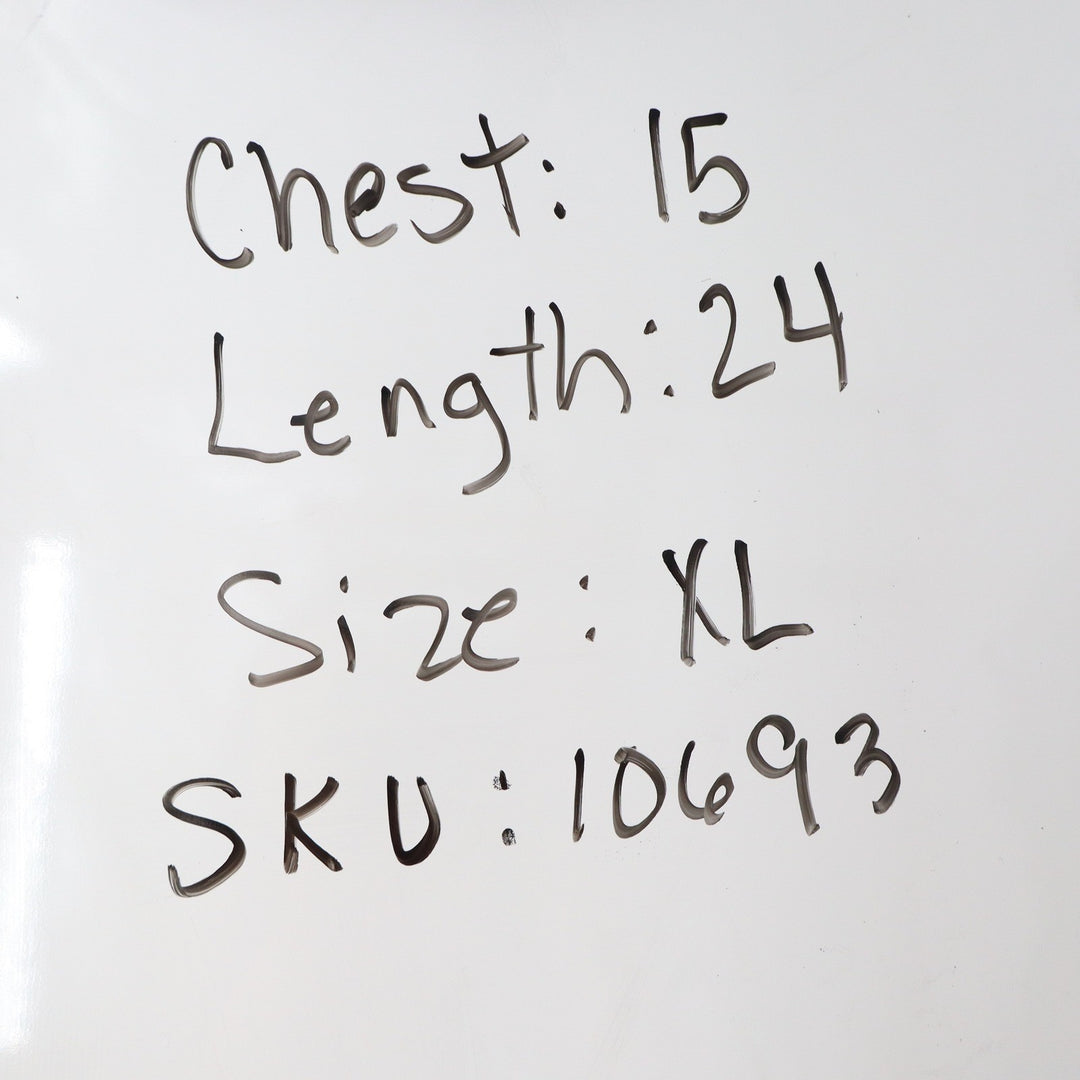 Chest: 15
Length: 24
Size: XL
SKU: 10693